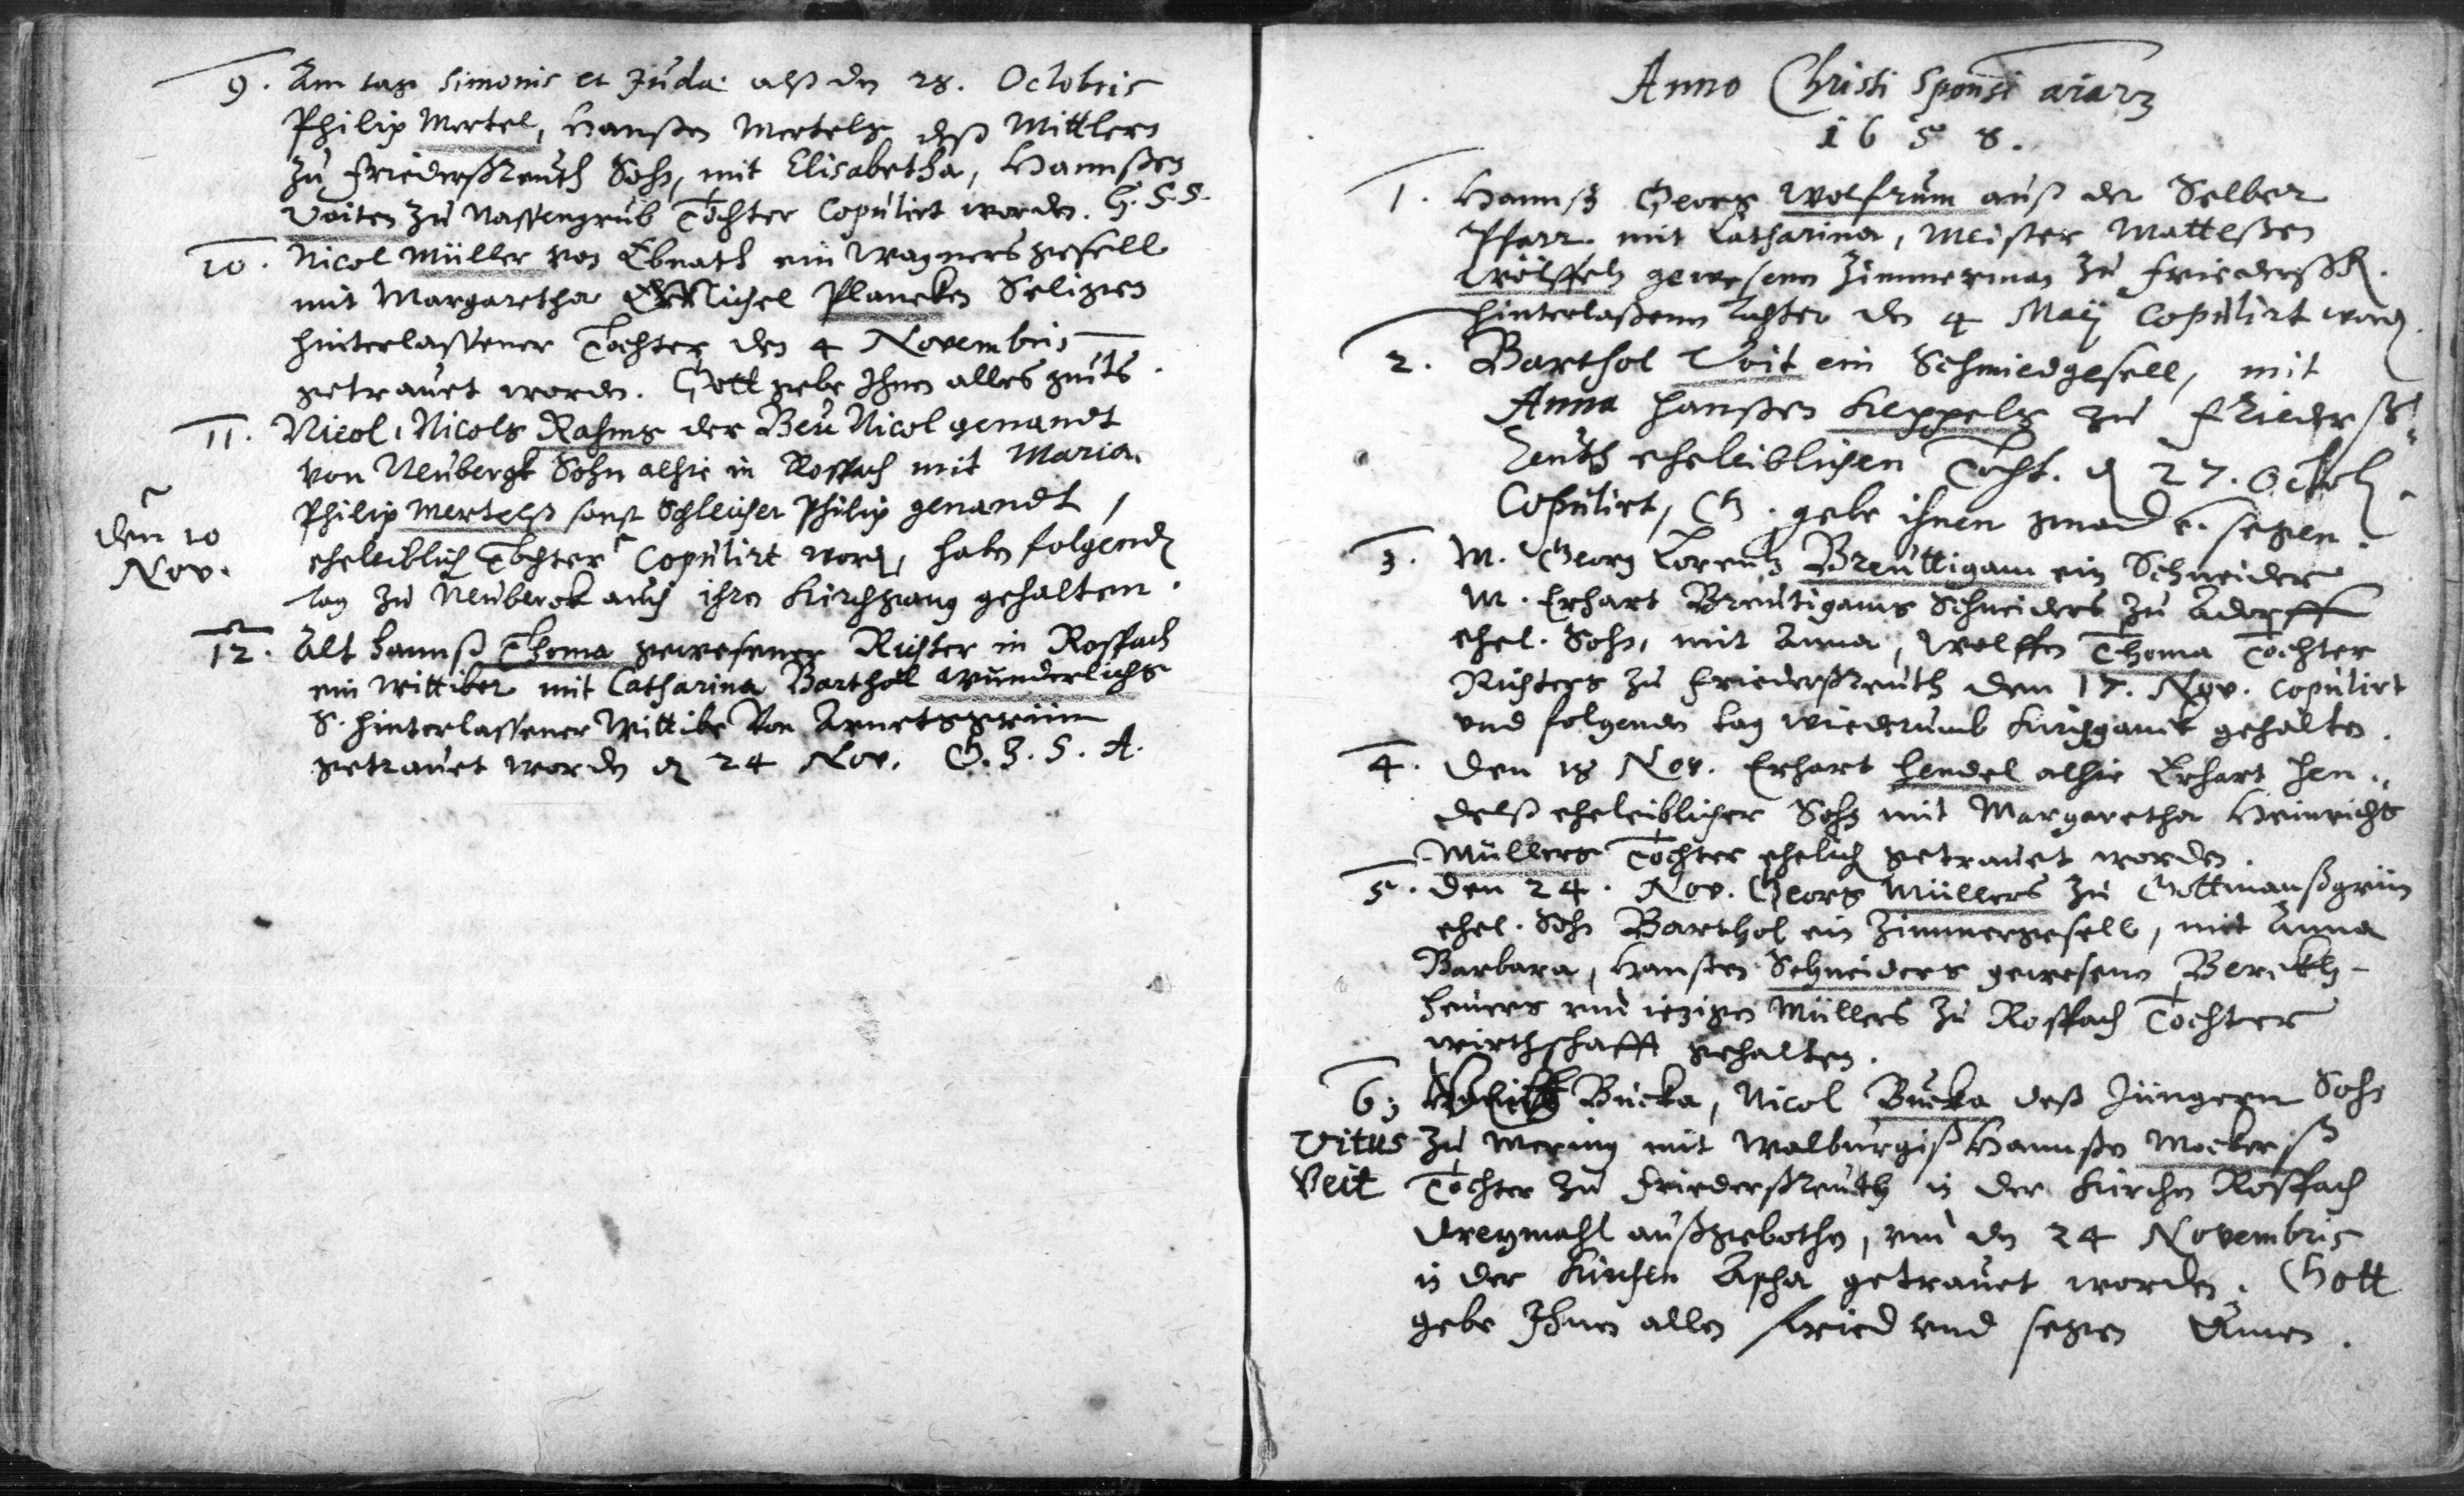 9. Am tag Simonis et Juda alß den 28. Octobris
Philip Mertel, Hanßen Mertels deß Mittlern
zu Friederßreuth Sohn, mit Elisabetha, Hannßen
Voiten zu Nassengrub Tochter Copulirt worden. G. S. S.
10. Nicol Müller von Ebnath ein Wagnersgesell
mit Margaretha Michel Plancken Seligen
hinterlassener Tochter den 4 Novembris
getrauet worden. Gott gebe Ihnen alles guts.
11. Nicol, Nicols Rahms der Beü Nicol genandt
von Neubergk Sohn alhie in Roßbach mit Maria
Philip Mertelß sonst Schleicher Philip genandt,
den 10
Nov.
eheleiblich Tochter Copulirt word, haben folgend
tag zu Neuberck auch ihren Kirchgang gehalten.
12. Alt Hannß Thoma gewesener Richter in Roßbach
ein Wittiber mit Catharina Barthol Wunderlichs
S. hinterlassener Wittibe Von Arnetsgrün
getrauet worden d 24 Nov. G. G. S. A.
Anno Christi Sponsi aiarz
1658.
1. Hannß Georg Wolfrum auß der Selber
Pfarr mit Catharina, Meister Matteßen
Wölffels gewesenen Zimmerman zu Friederßr.
hinterlaßenen Tochter den 4 Maij Copulirt word.
2. Barthol Voit ein Schmiedgesell, mit
Anna Hanßen Keppels zu Friederß-
reuth eheleiblichen Tocht. d 27. Octob.
Copulirt, G. gebe ihnen gnad u. segen.
3. M. Georg Lorentz Breuttigam ein Schneider
M. Erhart Breutigams Schneiders zu Adorff
ehel. Sohn, mit Anna, Wolffen Thoma Tochter
Richters zu Friederßreuth den 17. Nov. copulirt
und folgenden tag wiederumb Kirchganck gehalten.
4. Den 18 Nov. Erhart Hendel alhie Erhart Hen-
delß eheleiblicher Sohn mit Margaretha Heinrichs
Müllers Tochter ehelich getrauet worden.
5. Den 24. Nov. Georg Müllers zu Gottmanßgrün
ehel. Sohn Barthol ein Zimmergesell, mit Anna
Barbara, Hanßen Schneiders gewesenen Berckh-
heuers und ietzigen Müllers zu Roßbach Tochter
wirthschafft gehalten.
6. Bucka, Nicol Bucka deß Jüngern Sohn
Vitus zu Wering mit Walburgiß Hannßen Mockerß
Veit Tochter zu Friederßreuth in der Kirchen Roßbach
dreymahl außgebothen, und den 24 Novembris
in der Kirchen Ascha getrauet worden. Gott
gebe Ihnen allen fried und segen Amen.